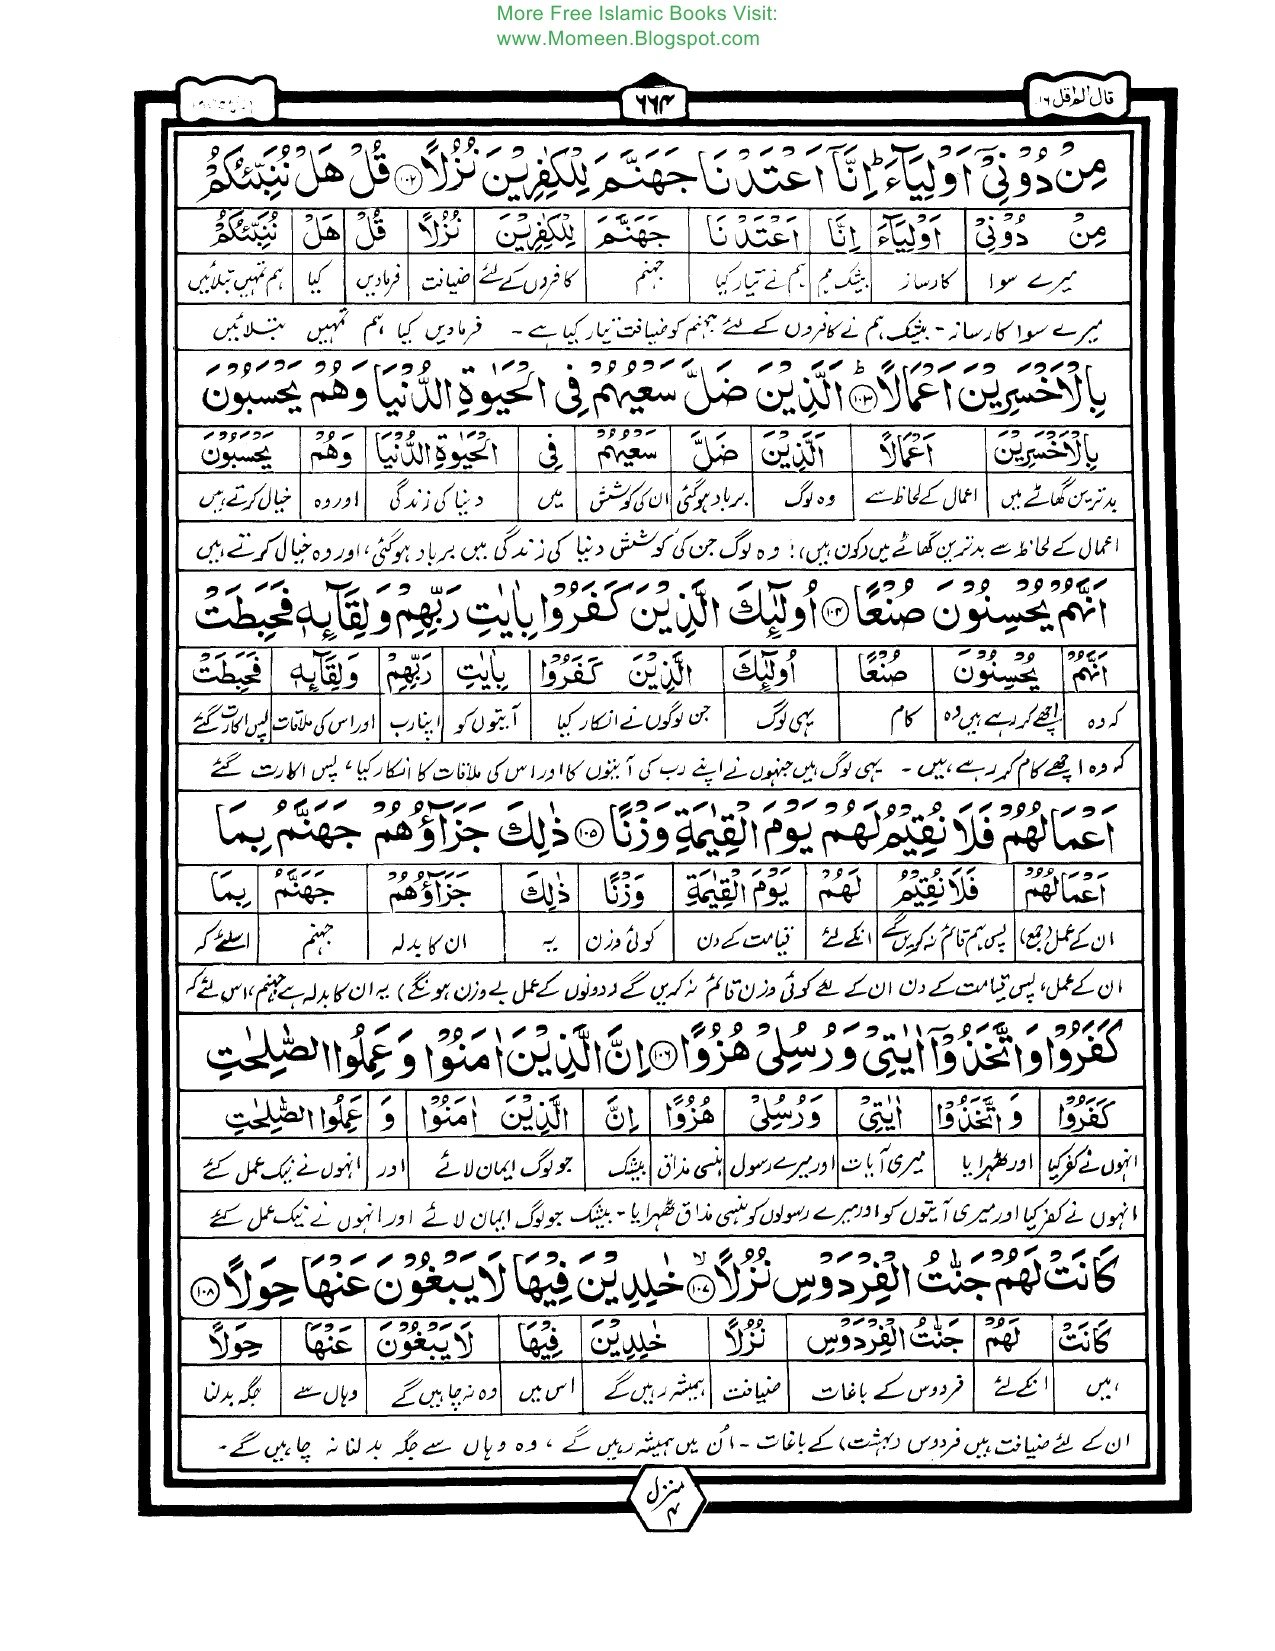 More Free Islamic Books Visit:
www.Momeen.Blogspot.com
قال الم اقل ١٦
٦٦٤
مِنْ دُوْنِيْۤ اَوْلِيَآءَ ؕ اِنَّاۤ اَعْتَدْنَا جَهَنَّمَ لِلْكٰفِرِيْنَ نُزُلًا ۝۱۰۲ قُلْ هَلْ نُنَبِّئُكُمْ
مِنْ دُوْنِيْۤ اَوْلِيَآءَ اِنَّا اَعْتَدْنَا جَهَنَّمَ لِلْكٰفِرِيْنَ نُزُلًا قُلْ هَلْ نُنَبِّئُكُمْ
میرے سوا کارساز بیشک ہم ہم نے تیار کیا جہنم کافروں کے لئے ضیافت فرمادیں کیا ہم تمہیں بتلائیں
میرے سوا کارساز ۔ بیشک ہم نے کافروں کے لئے جہنم کو ضیافت تیار کیا ہے ۔ فرمادیں کیا ہم تمہیں بتلائیں
بِالْاَخْسَرِيْنَ اَعْمَالًا ؕ ۝۱۰۳ اَلَّذِيْنَ ضَلَّ سَعْيُهُمْ فِي الْحَيٰوةِ الدُّنْيَا وَهُمْ يَحْسَبُوْنَ
بِالْاَخْسَرِيْنَ اَعْمَالًا اَلَّذِيْنَ ضَلَّ سَعْيُهُمْ فِي الْحَيٰوةِ الدُّنْيَا وَهُمْ يَحْسَبُوْنَ
بدترین گھاٹے میں اعمال کے لحاظ سے وہ لوگ برباد ہوگئی ان کی کوشش میں دنیا کی زندگی اور وہ خیال کرتے ہیں
اعمال کے لحاظ سے بدترین گھاٹے میں (کون ہیں)؛ وہ لوگ جن کی کوشش دنیا کی زندگی میں برباد ہوگئی، اور وہ خیال کرتے ہیں
اَنَّهُمْ يُحْسِنُوْنَ صُنْعًا ۝۱۰۴ اُولٰٓئِكَ الَّذِيْنَ كَفَرُوْا بِاٰيٰتِ رَبِّهِمْ وَلِقَآئِهٖ فَحَبِطَتْ
اَنَّهُمْ يُحْسِنُوْنَ صُنْعًا اُولٰٓئِكَ الَّذِيْنَ كَفَرُوْا بِاٰيٰتِ رَبِّهِمْ وَلِقَآئِهٖ فَحَبِطَتْ
کہ وہ اچھے کر رہے ہیں وہ کام یہی لوگ جن لوگوں نے انکار کیا آیتوں کو اپنا رب اور اس کی ملاقات پس اکارت گئے
کہ وہ اچھے کام کر رہے ہیں ۔ یہی لوگ ہیں جنہوں نے اپنے رب کی آیتوں کا اور اس کی ملاقات کا انکار کیا، پس اکارت گئے
اَعْمَالُهُمْ فَلَا نُقِيْمُ لَهُمْ يَوْمَ الْقِيٰمَةِ وَزْنًا ۝۱۰۵ ذٰلِكَ جَزَآؤُهُمْ جَهَنَّمُ بِمَا
اَعْمَالُهُمْ فَلَا نُقِيْمُ لَهُمْ يَوْمَ الْقِيٰمَةِ وَزْنًا ذٰلِكَ جَزَآؤُهُمْ جَهَنَّمُ بِمَا
ان کے عمل (جمع) پس ہم قائم نہ کریں گے انکے لئے قیامت کے دن کوئی وزن یہ ان کا بدلہ جہنم اسلئے کہ
ان کے عمل، پس قیامت کے دن ان کے لئے کوئی وزن قائم نہ کریں گے (دونوں کے عمل بے وزن ہونگے) یہ ان کا بدلہ ہے جہنم، اس لئے کہ
كَفَرُوْا وَاتَّخَذُوْۤا اٰيٰتِيْ وَرُسُلِيْ هُزُوًا ۝۱۰۶ اِنَّ الَّذِيْنَ اٰمَنُوْا وَعَمِلُوا الصّٰلِحٰتِ
كَفَرُوْا وَاتَّخَذُوْۤا اٰيٰتِيْ وَرُسُلِيْ هُزُوًا اِنَّ الَّذِيْنَ اٰمَنُوْا وَ عَمِلُوا الصّٰلِحٰتِ
انہوں نے کفر کیا اور ٹھہرایا میری آیات اور میرے رسول ہنسی مذاق بیشک جو لوگ ایمان لائے اور انہوں نے نیک عمل کئے
انہوں نے کفر کیا اور میری آیتوں کو اور میرے رسولوں کو ہنسی مذاق ٹھہرایا ۔ بیشک جو لوگ ایمان لائے اور انہوں نے نیک عمل کئے
كَانَتْ لَهُمْ جَنّٰتُ الْفِرْدَوْسِ نُزُلًا ۙ ۝۱۰۷ خٰلِدِيْنَ فِيْهَا لَا يَبْغُوْنَ عَنْهَا حِوَلًا ۝۱۰۸
كَانَتْ لَهُمْ جَنّٰتُ الْفِرْدَوْسِ نُزُلًا خٰلِدِيْنَ فِيْهَا لَا يَبْغُوْنَ عَنْهَا حِوَلًا
ہیں انکے لئے فردوس کے باغات ضیافت ہمیشہ رہیں گے اس میں وہ نہ چاہیں گے وہاں سے جگہ بدلنا
ان کے لئے ضیافت ہیں فردوس (بہشت) کے باغات ۔ ان میں ہمیشہ رہیں گے ، وہ وہاں سے جگہ بدلنا نہ چاہیں گے ۔
منزل ۴